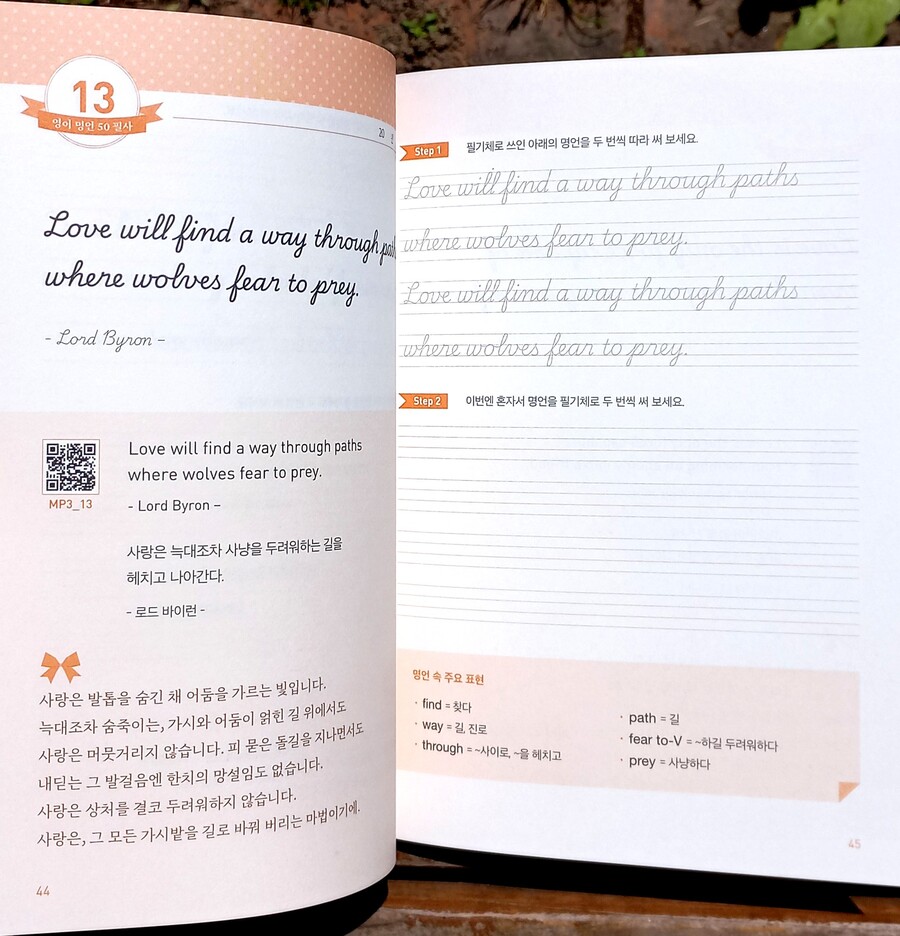 13
영어 명언 50 필사
20
Love will find a way through
where wolves fear to prey.
- Lord Byron -
MP3_13
Love will find a way through paths
where wolves fear to prey.
- Lord Byron -
사랑은 늑대조차 사냥을 두려워하는 길을
헤치고 나아간다.
- 로드 바이런 -
사랑은 발톱을 숨긴 채 어둠을 가르는 빛입니다.
늑대조차 숨죽이는, 가시와 어둠이 얽힌 길 위에서도
사랑은 머뭇거리지 않습니다. 피 묻은 돌길을 지나면서도
내딛는 그 발걸음엔 한치의 망설임도 없습니다.
사랑은 상처를 결코 두려워하지 않습니다.
사랑은, 그 모든 가시밭을 길로 바꿔 버리는 마법이기에.
44
Step 1 필기체로 쓰인 아래의 명언을 두 번씩 따라 써 보세요.
Love will find a way through paths
where wolves fear to prey.
Love will find a way through paths
where wolves fear to prey.
Step 2 이번엔 혼자서 명언을 필기체로 두 번씩 써 보세요.
명언 속 주요 표현
· find = 찾다
· way = 길, 진로
· through = ~사이로, ~을 헤치고
· path = 길
· fear to-V = ~하길 두려워하다
· prey = 사냥하다
45